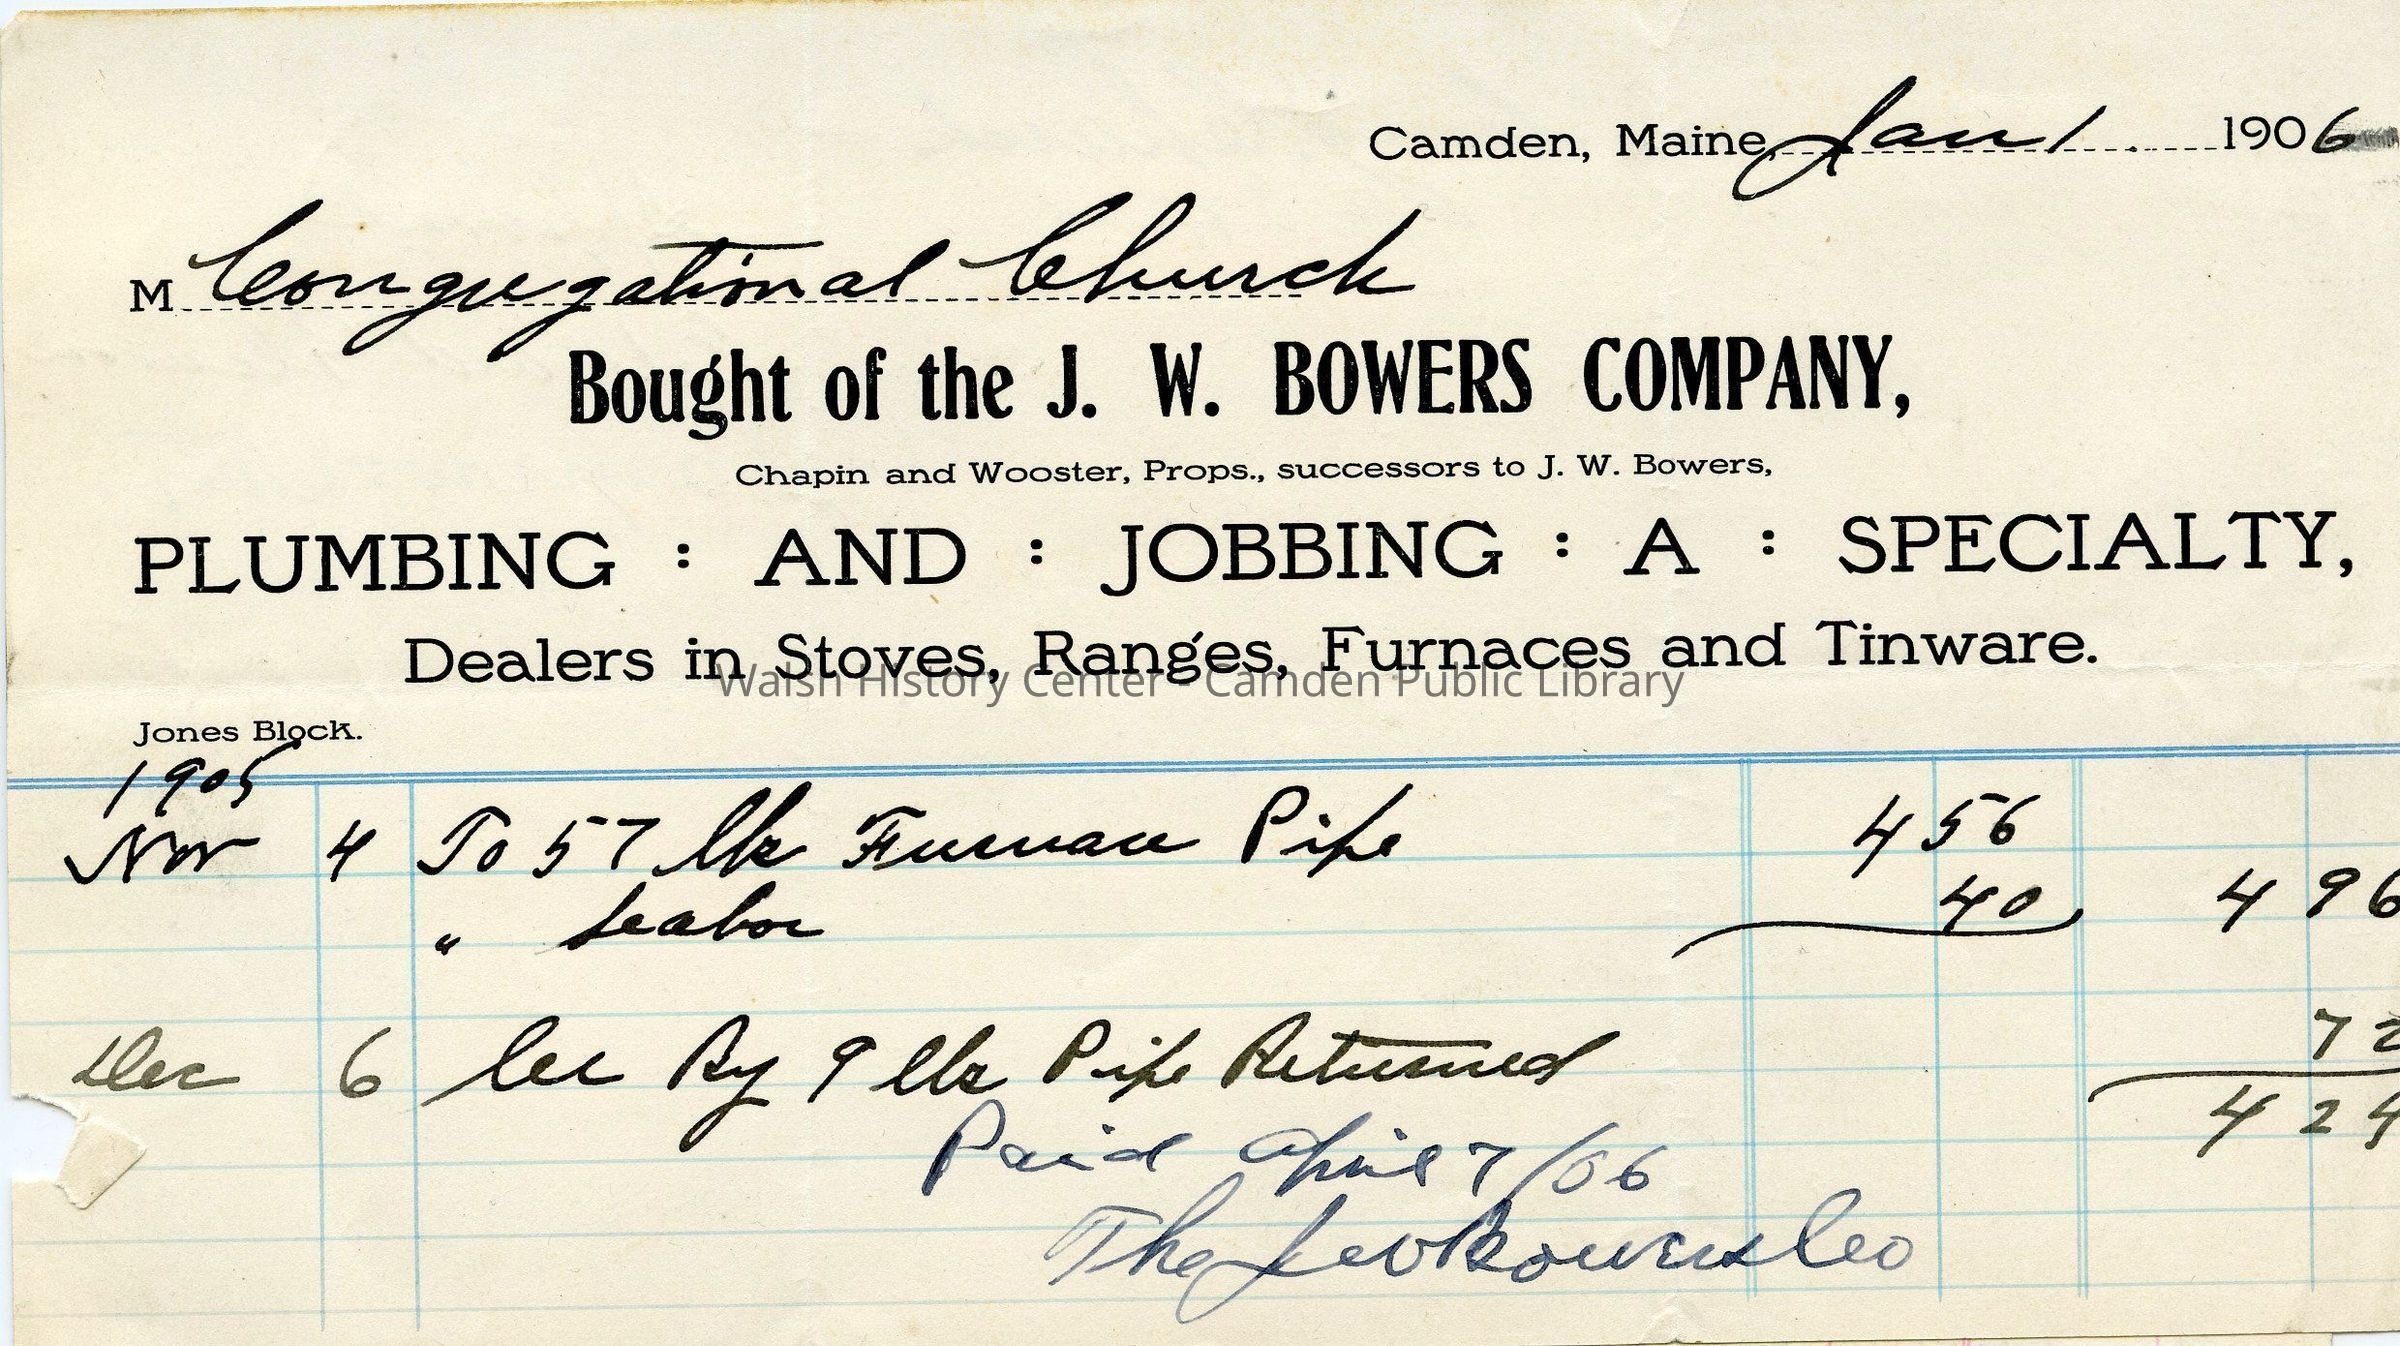 Camden, Maine, Jan 1 1906
M Congregational Church
Bought of the J. W. BOWERS COMPANY,
Chapin and Wooster, Props., successors to J. W. Bowers,
PLUMBING : AND : JOBBING : A : SPECIALTY,
Dealers in Stoves, Ranges, Furnaces and Tinware.
Walsh History Center - Camden Public Library
Jones Block.
1905
Nov 4 To 57 lbs Furnace Pipe 4 56
" Labor 40 4 96
Dec 6 Cr By 9 lbs Pipe Returned 72
4 24
Paid April 7/06
The J W Bowers Co